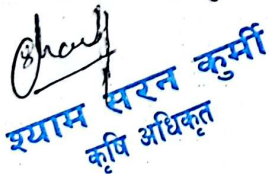 श्याम सरन कुर्मी
कृषि अधिकृत